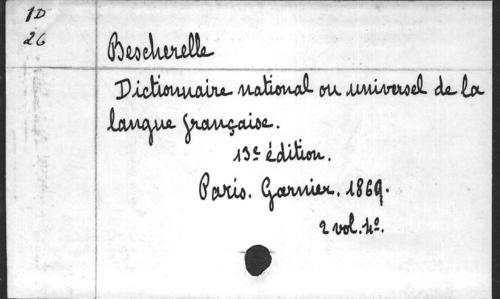 1D
26
Bescherelle
Dictionnaire national ou universel de la
langue française.
13e édition.
Paris. Garnier. 1869.
2 vol. 4o.